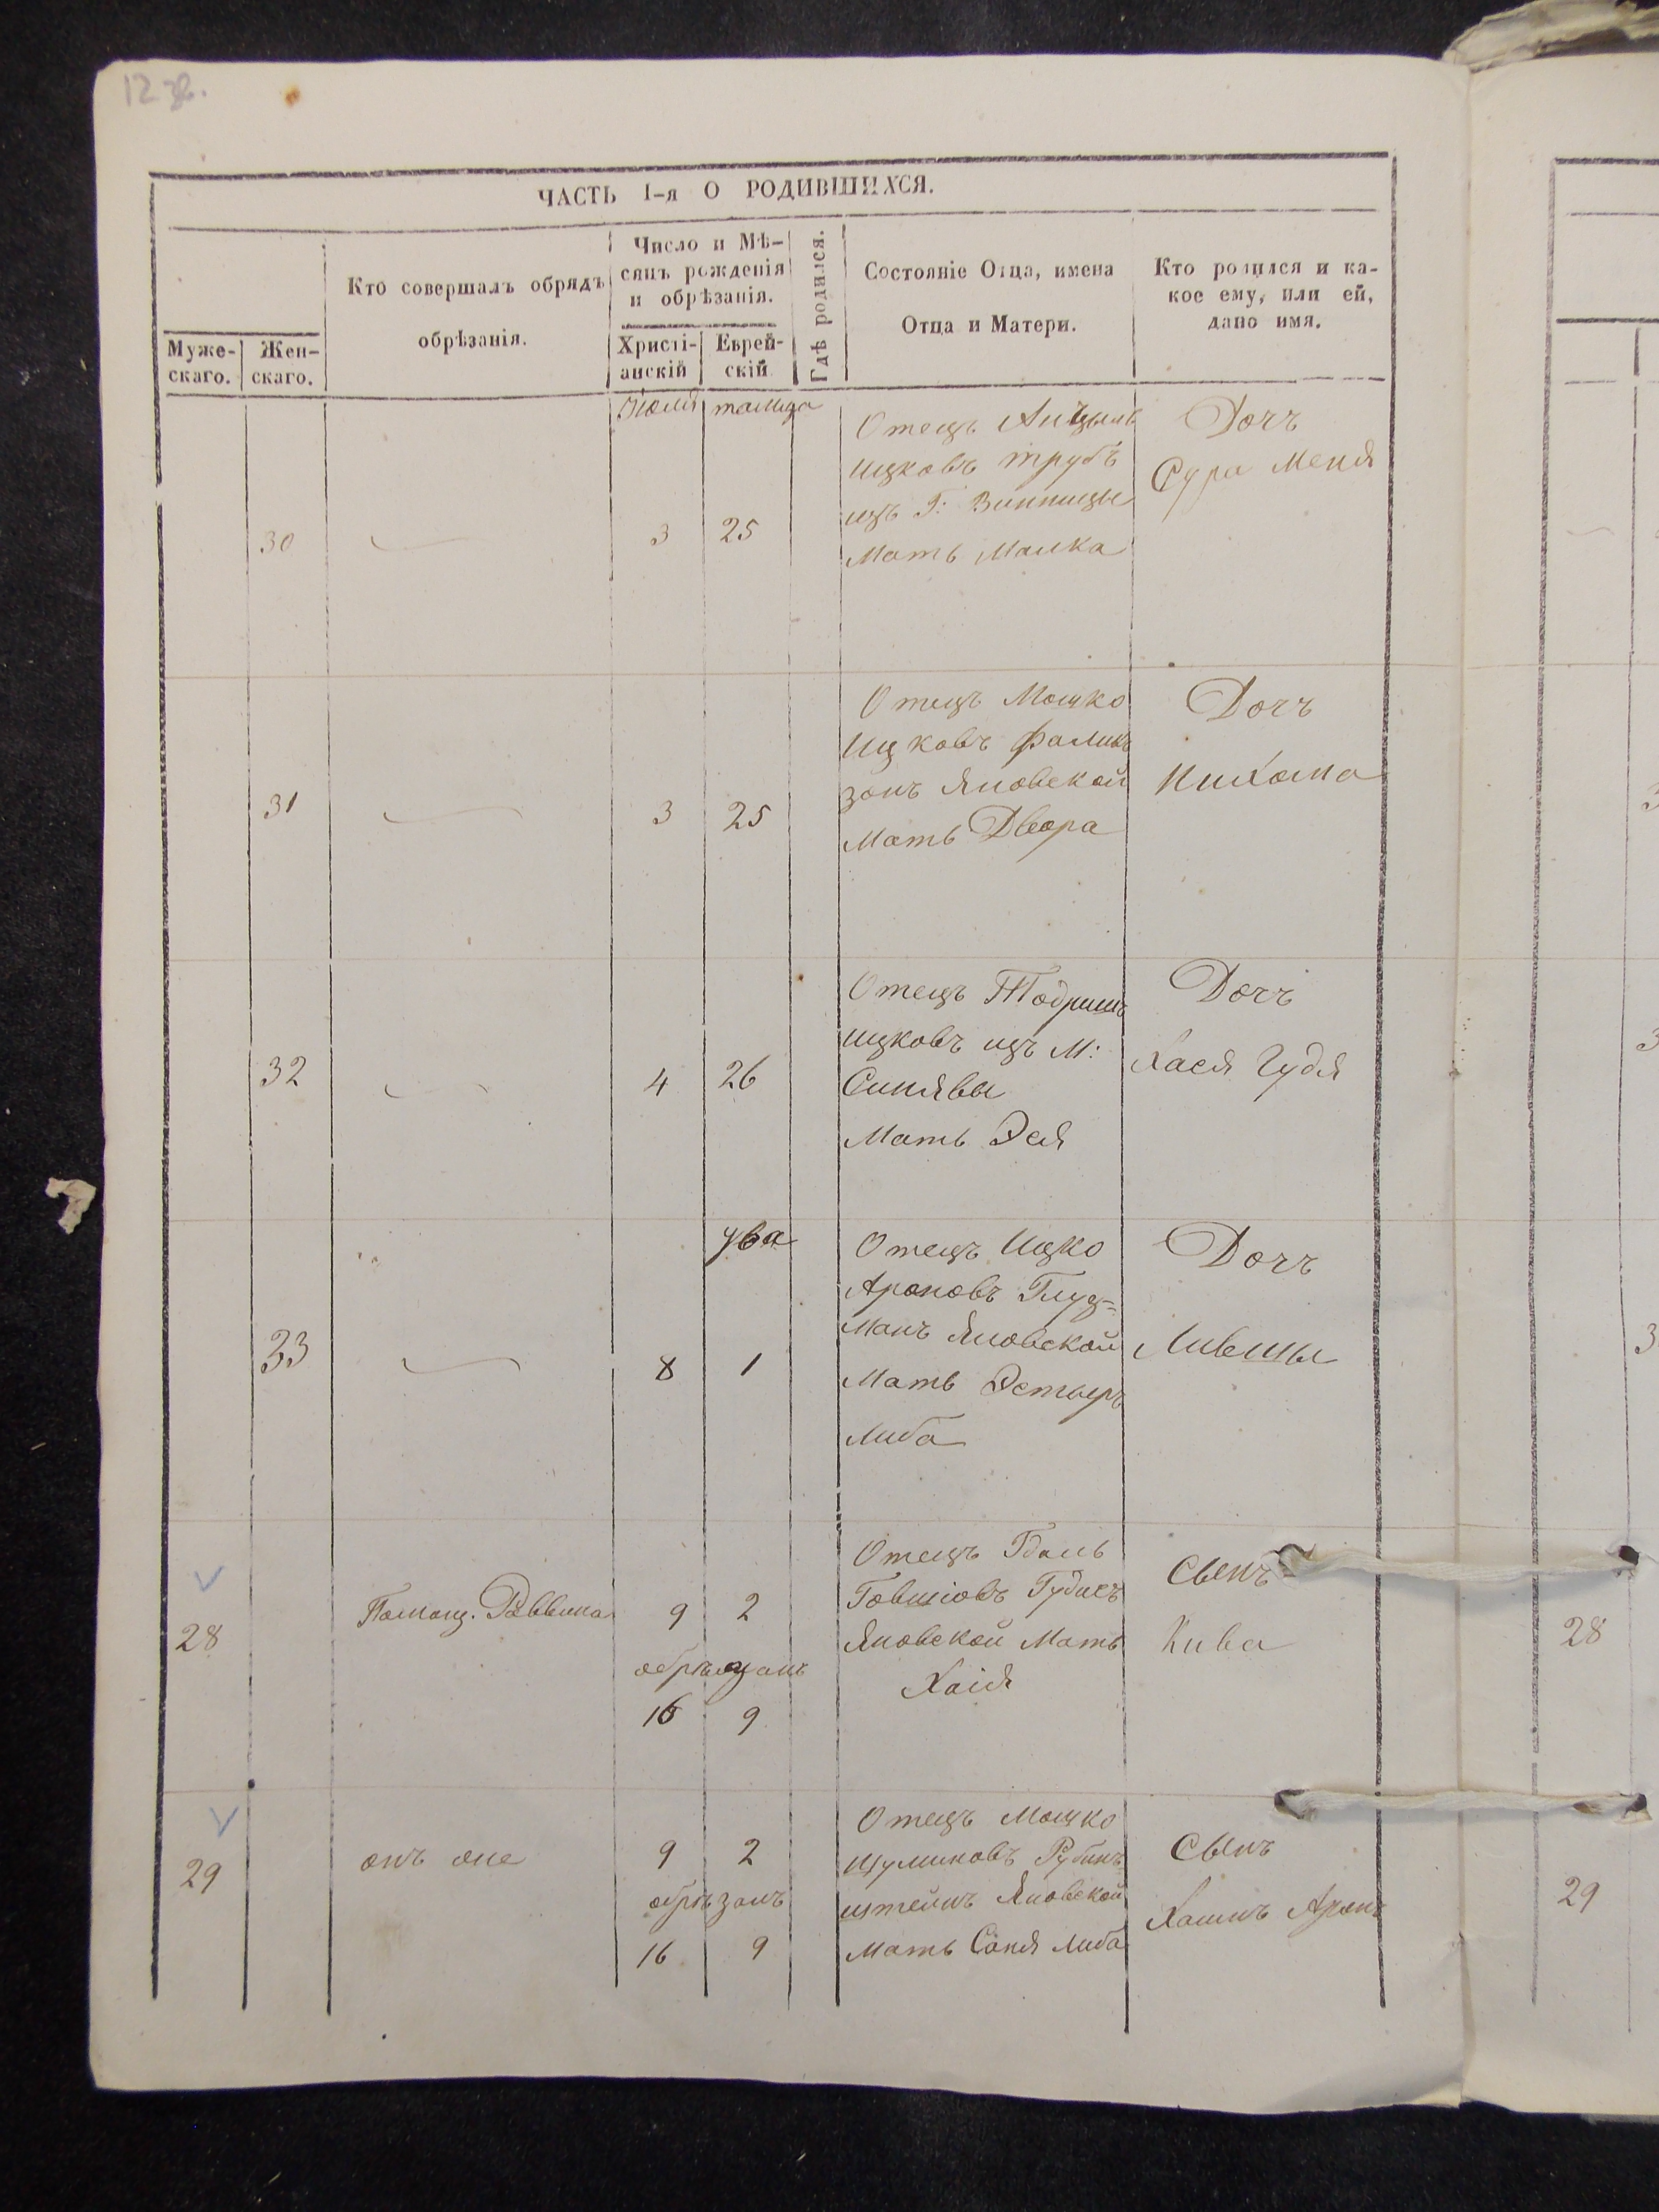 12 зв.
ЧАСТЬ I-я О РОДИВШИХСЯ.
Муже-
скаго.
Жен-
скаго.
Кто совершалъ обрядъ
обрѣзанія.
Число и Мѣ-
сяцъ рожденія
и обрѣзанія.
Христі-
анскій
Еврей-
скій
Гдѣ родился.
Состояніе Отца, имена
Отца и Матери.
Кто родился и ка-
кое ему, или ей,
дано имя.
Июля тамуза
30
3 25
Отецъ Анцыль
Ицковъ трубъ
изъ Г: Винницы
Мать Малка
Дочъ
Сура Меня
31
3 25
Отецъ Мошко
Ицковъ
зонъ Яновской
Мать Двора
Дочъ
Нихама
32
4 26
Отецъ Тодришъ
Ицковъ изъ М:
Синявы
Мать Эся
Дочъ
Хася Гудя
33
ува
8 1
Отецъ Ицко
Ароновъ Глуз-
манъ Яновской
Мать Эстыръ
Либа
Дочъ
28
Помощ. Раввина
9 2
обрѣзанъ
16 9
Отецъ Гдаль
Говшіовъ Гудисъ
Яновской Мать
Хаія
Сынъ
Кива
29
онъ же
9 2
обрѣзанъ
16 9
Отецъ Мошко
Шулимовъ Рубинъ
штейнъ Яновской
Мать Соня Либа
Сынъ
Хаимъ Аронъ
28
29